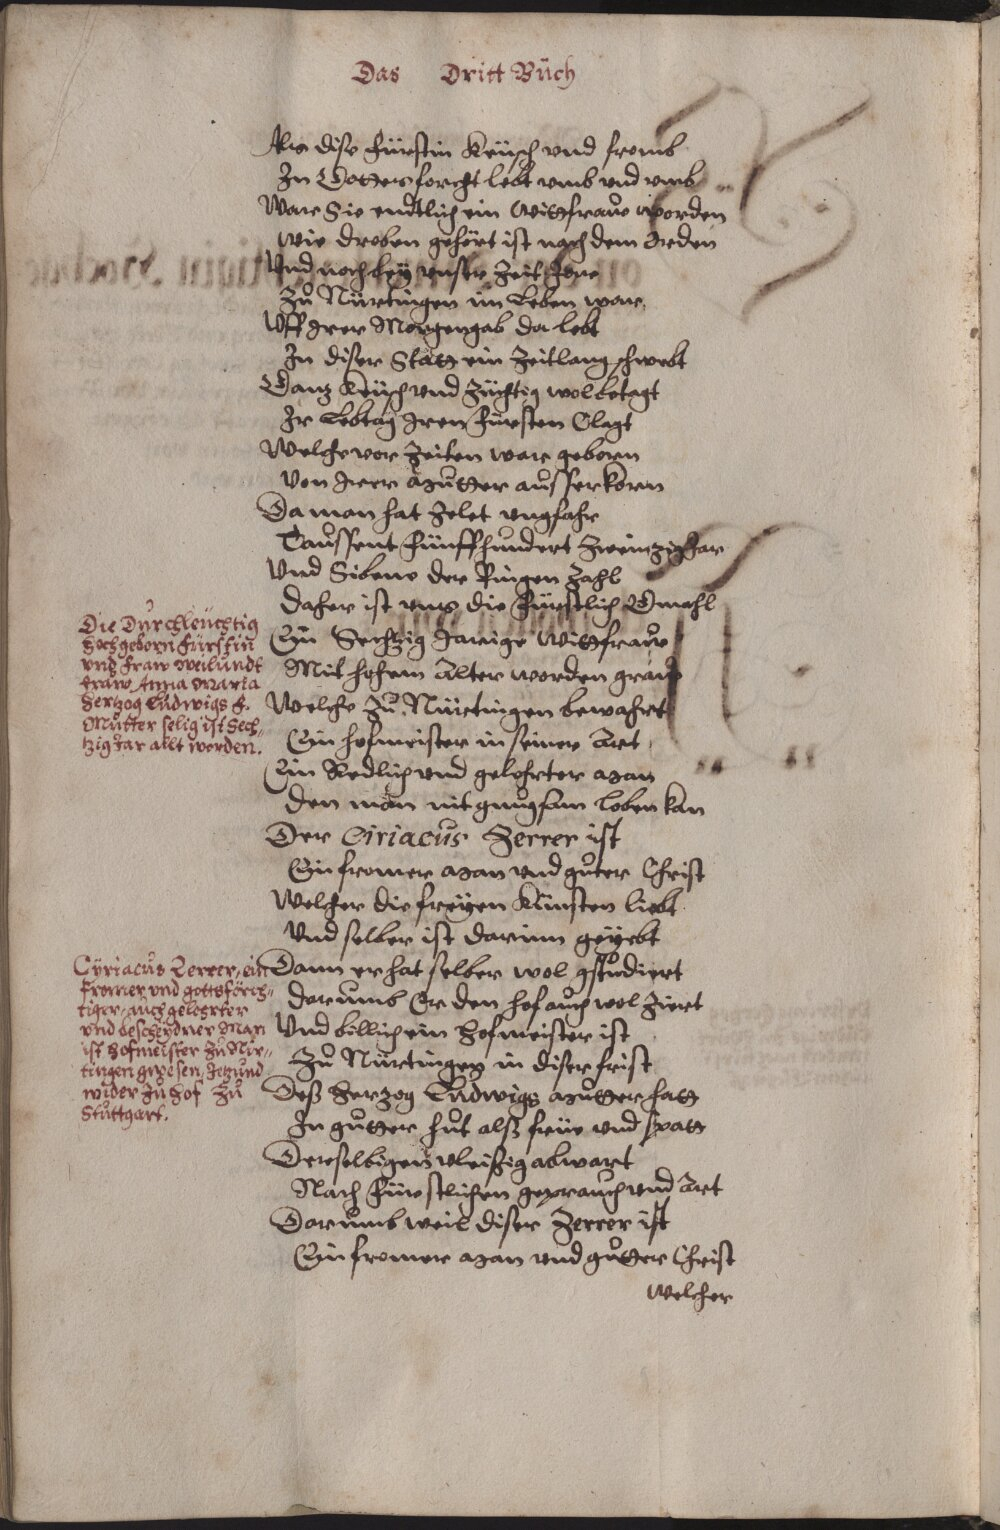 Das Dritt Bůch
Als dise Fürstin keüsch vnd fromb
In Gottes forcht lebt vmb vnd vmb
War Sie endtlich ein Wittfraw worden
Wie droben gehört ist nach dem Orden
Vnd noch bey vnser Zeit
Zů Nürtingen im Leben war
Vff Irer Morgengab da lebt
In diser Statt ein Zeitlang schwebt
Ganz keüsch vnd züchtig wol betagt
Ir Lebtag Iren Fürsten Clagt
Welche vor Zeiten war geborn
Von Irer Můtter außerkorn
Da man hat Zelet vngfahr
Taussent Fünffhundert Zweinzig Jar
Vnd Sibene der Ringen Zahl
Daher ist vns die Fürstlich Gmahl
Ein Sechtzig Jarige Wittfraw
Mit hohem Alter worden graw
Welche Zů Nürtingen bewahrt
Ein Hofmeister in seiner Art
Ein Redlich vnd gelehrter Man
Den man nit gnůgsam loben kan
Der Ciriacůs Zerrer ist
Ein fromer Man vnd gůter Christ
Welcher die freyen Künsten liebt
Vnd selber ist darinn geyebt
Dann er hat selber wol gstůdiert
Darumb Er den Hof auch wol Ziert
Vnd billich ein Hofmeister ist
Zů Nürtingen in diser frist
Deß Herzog Lůdwigs Můtter hatt
In gůtter hůt alß früe vnd spatt
Derselbigen vleißig abwart
Nach Fürstlichen geprauch vnd Art
Darumb weil diser Zerrer ist
Ein fromer Man vnd gůtter Christ
Welcher
Die Důrchleüchtig
Hochgeborn Fürstin
vnd Fraw Weilůndt
Fraw Anna Maria
Hertzog Lůdwigs F.
Můtter selig ist Sech-
tzig Jar allt worden.
Cÿriacůs Zerrer, ein
fromer vnd gottsförch-
tiger, aůch gelehrter
vnd bescheÿdner Man
ist Hofmeister Zů Nür-
tingen gwesen, Jetzund
wider Zů Hof Zů
Stůttgart.